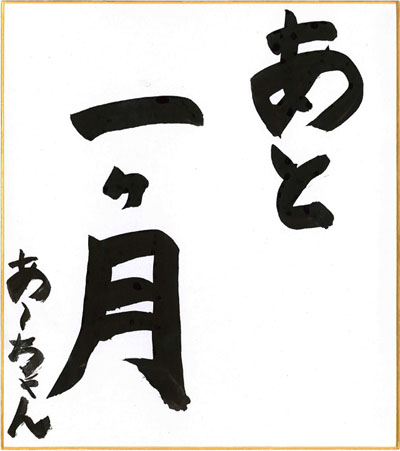 あと
一ヶ月
あーちゃん